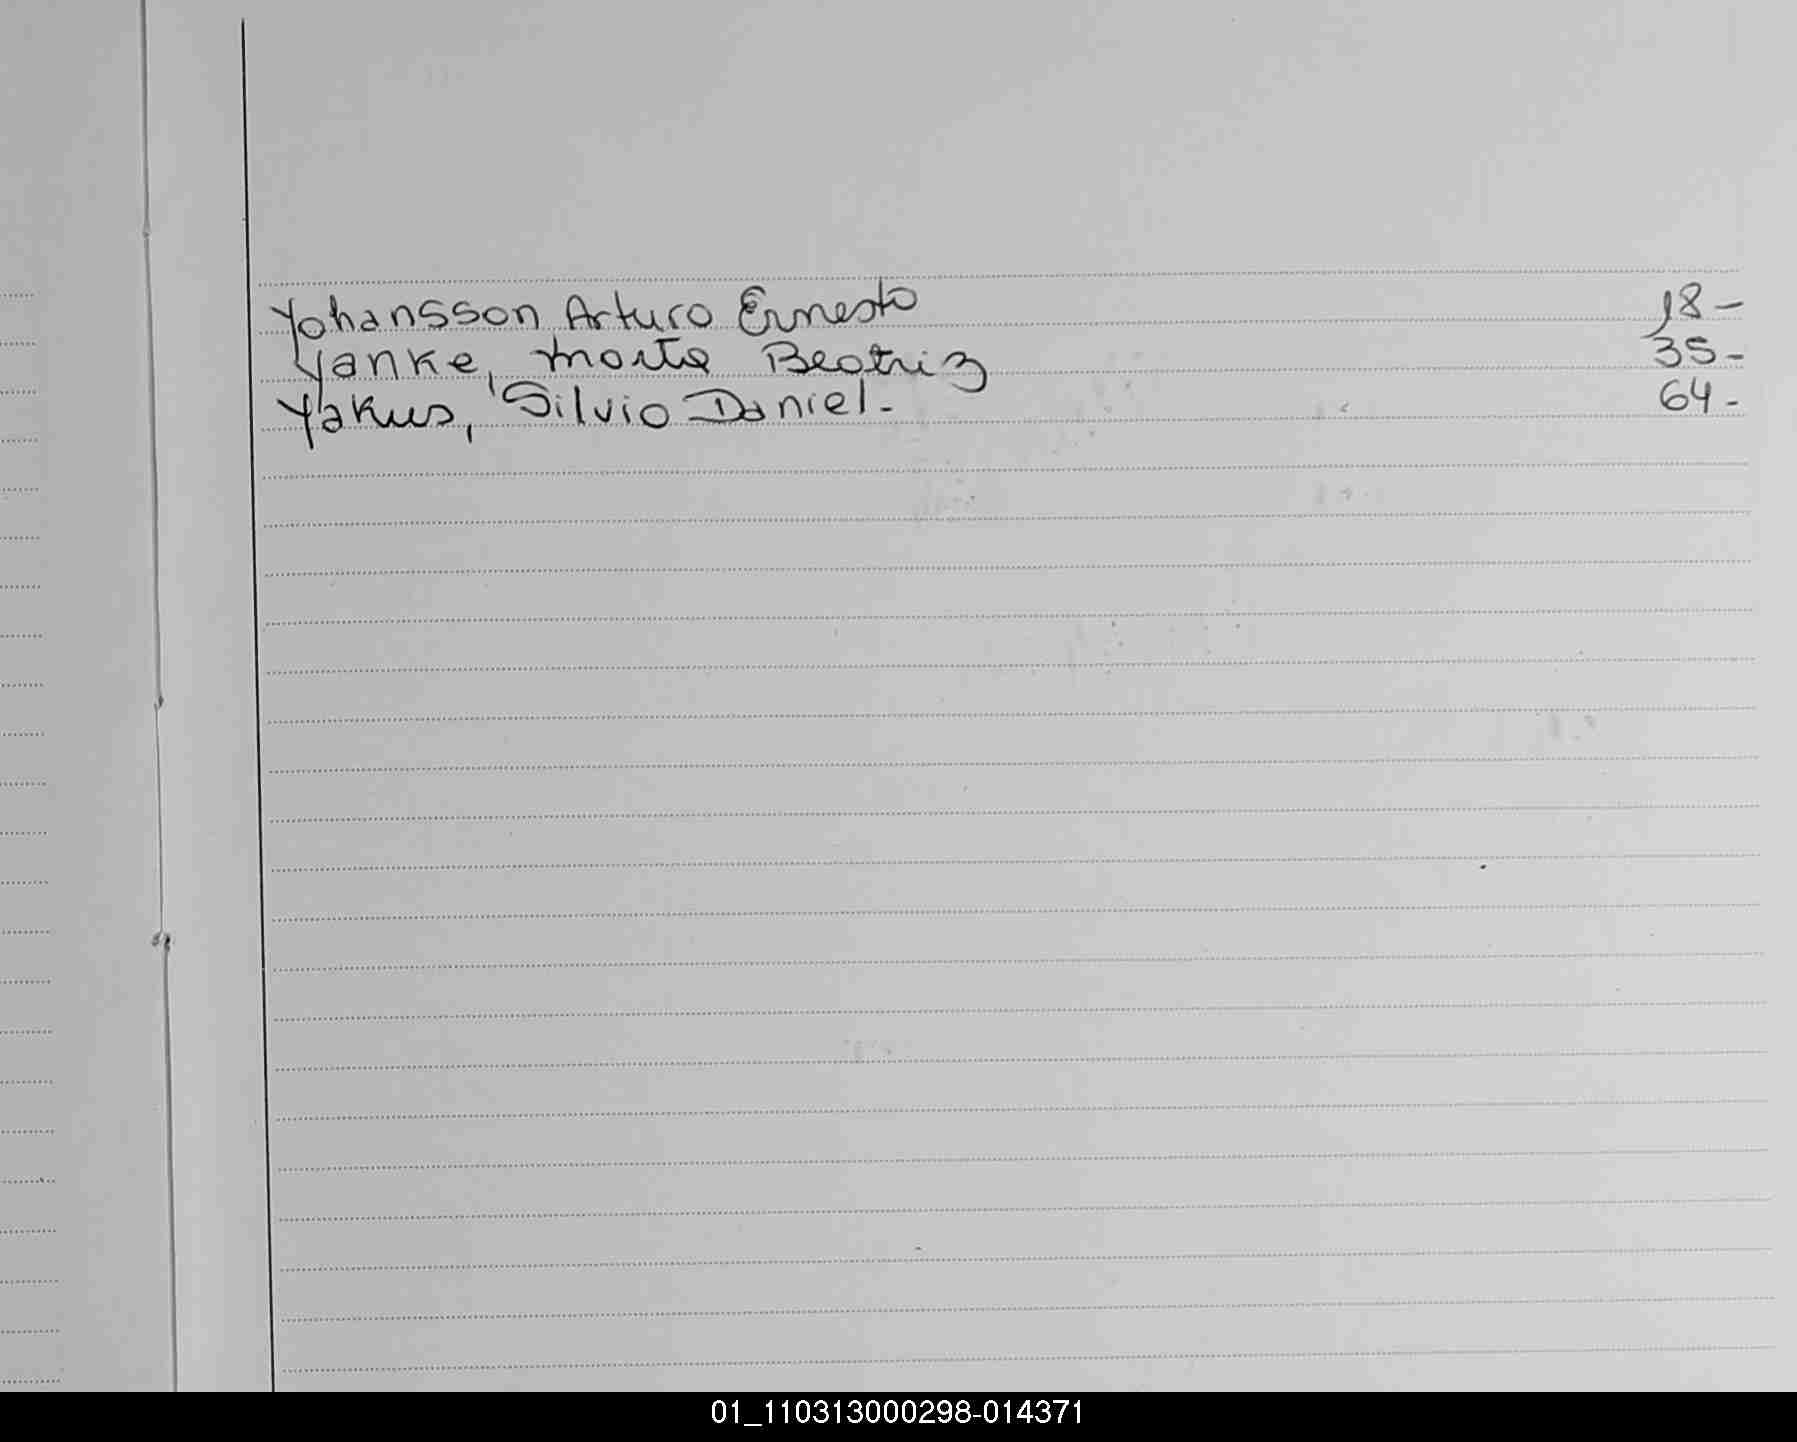 Yohansson Arturo Ernesto 18-
Yanke, Marta Beatriz 35-
Yakus, Silvio Daniel. 64-
01_110313000298-014371